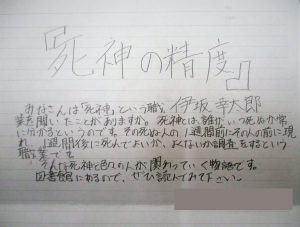 『死神の精度』
伊坂幸太郎
みなさんは「死神」という職
業を聞いたことがありますか。死神とは、誰がいつ死ぬか常
に分かるというのです。その死ぬ人の1週間前にその人の前に現
れ、1週間後に死んでよいか、よくないか調査をするという
職業です。
そんな死神と色々な人が関わっていく物語です。
図書館にあるので、ぜひ読んでみて下さい。